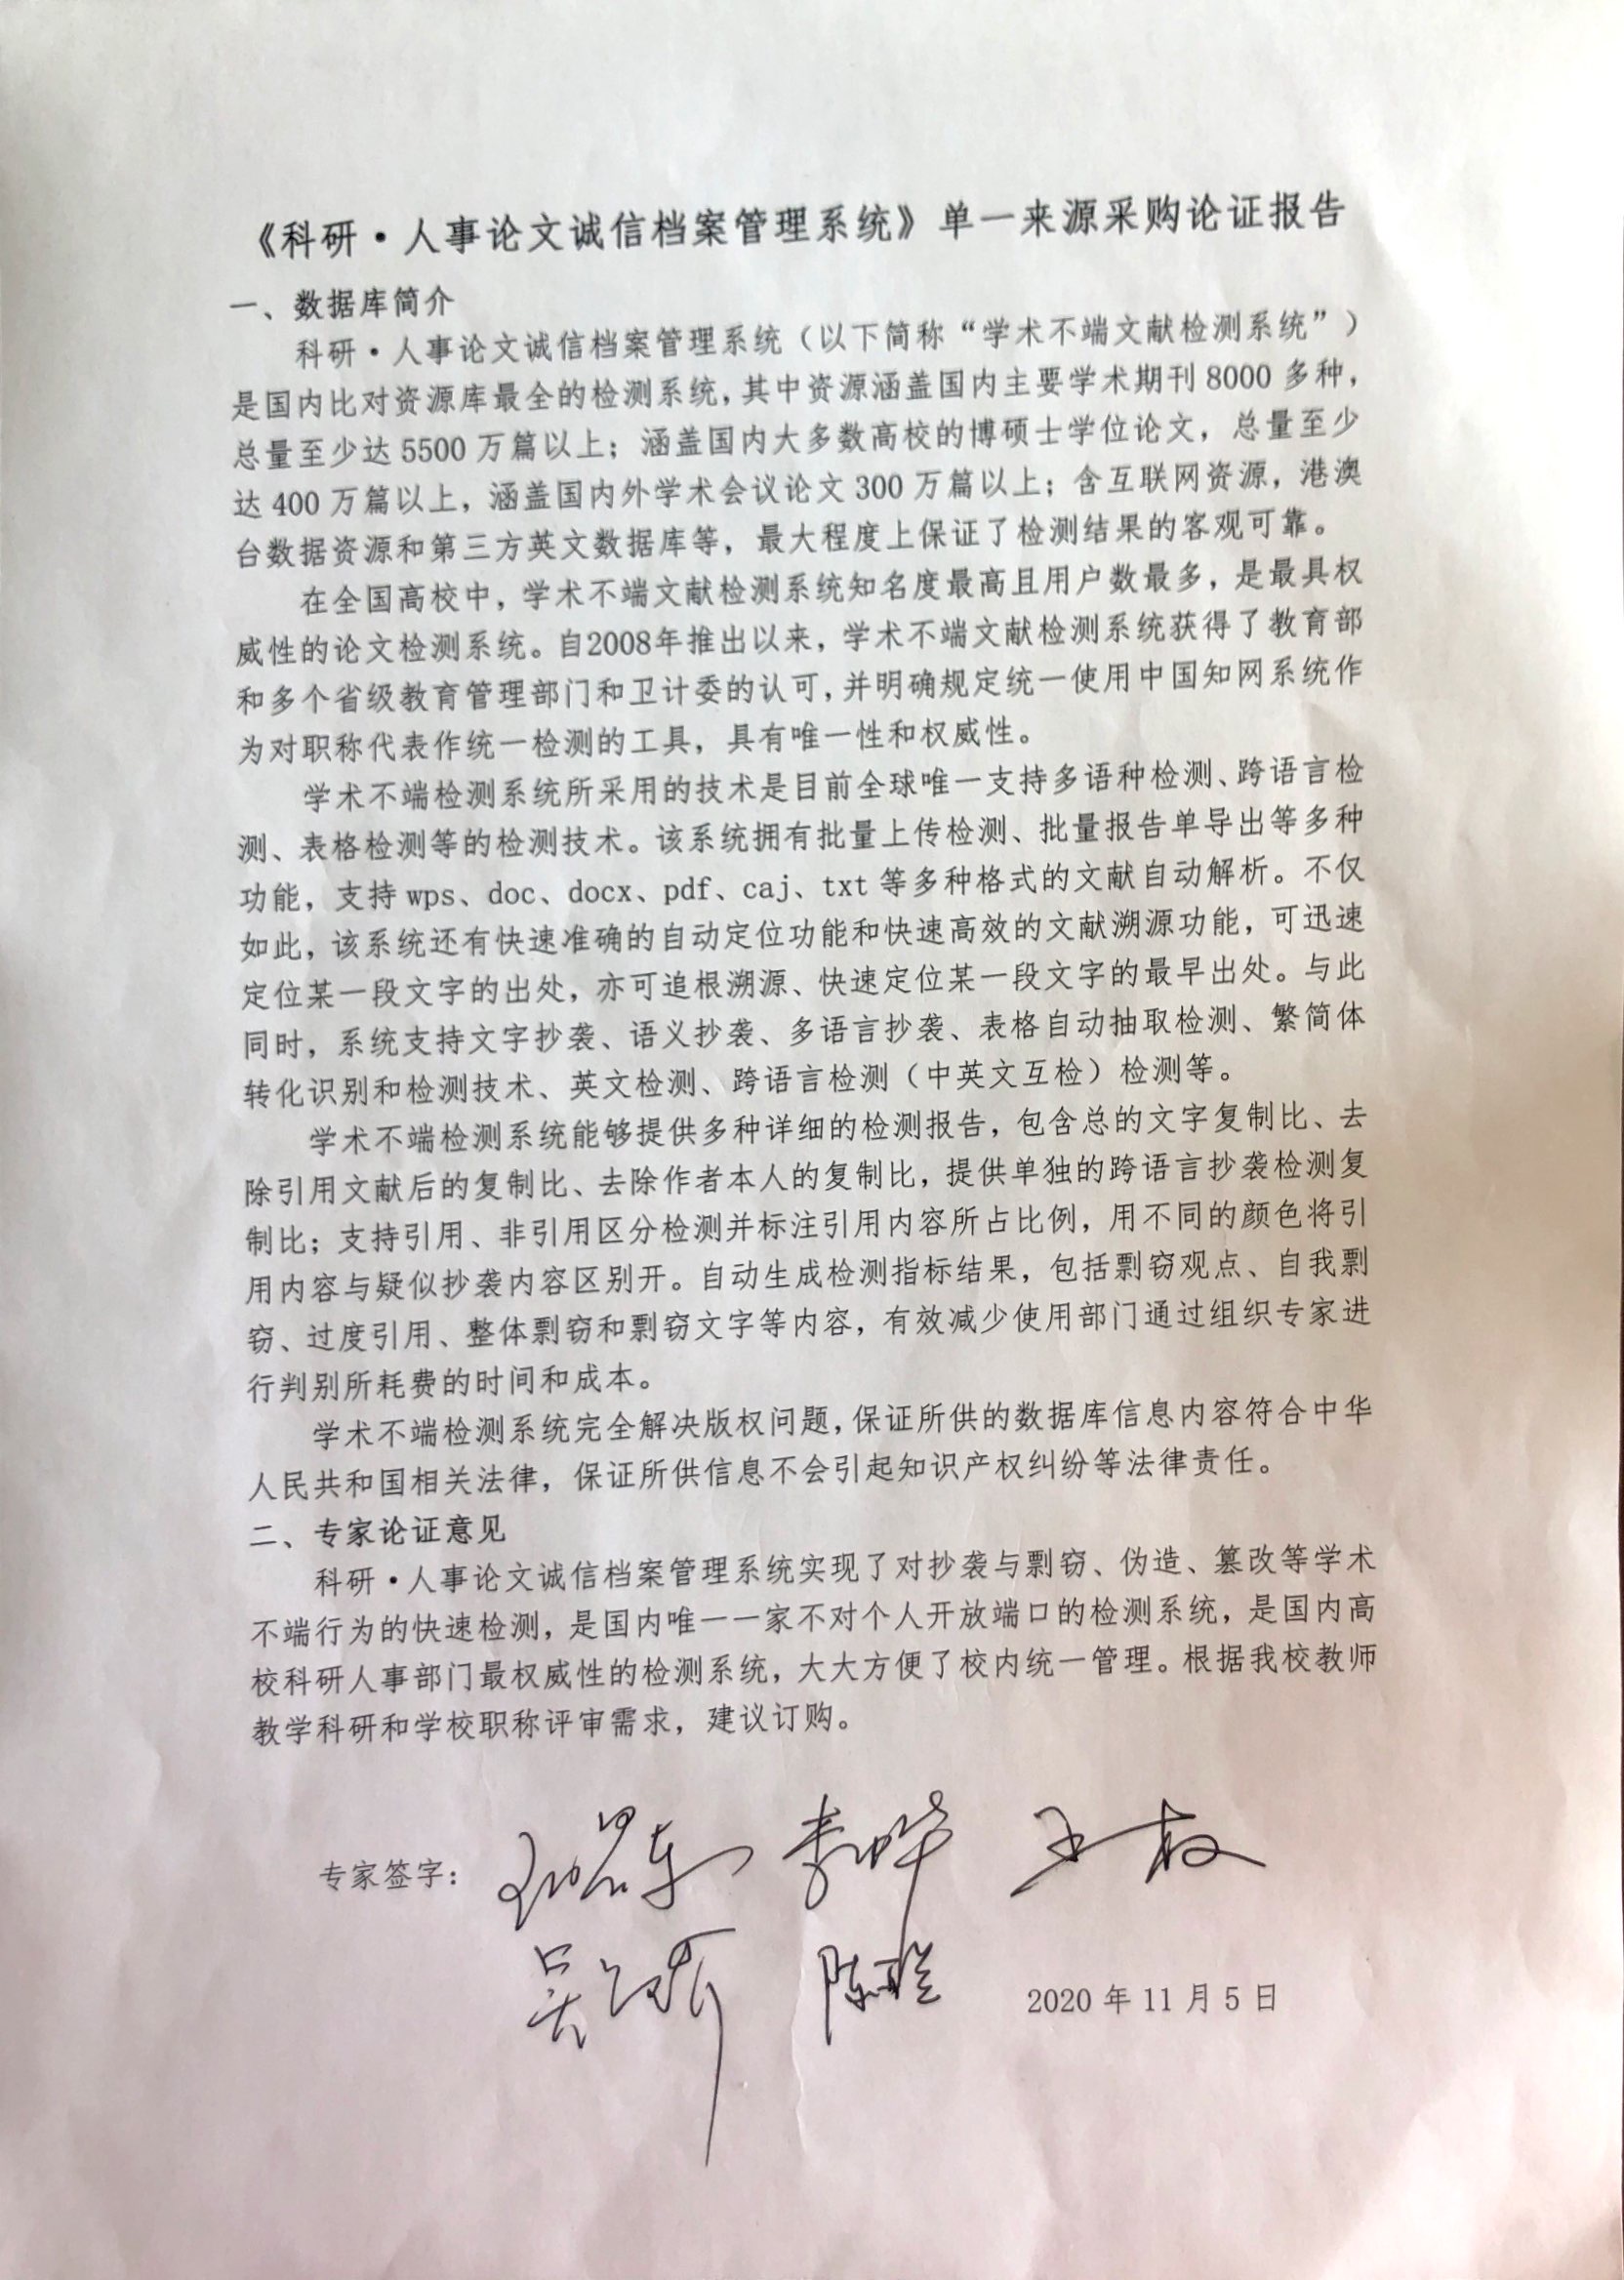 《科研·人事论文诚信档案管理系统》单一来源采购论证报告
一、数据库简介
科研·人事论文诚信档案管理系统（以下简称“学术不端文献检测系统”）
是国内比对资源库最全的检测系统，其中资源涵盖国内主要学术期刊 8000 多种，
总量至少达 5500 万篇以上；涵盖国内大多数高校的博硕士学位论文，总量至少
达 400 万篇以上，涵盖国内外学术会议论文 300 万篇以上；含互联网资源，港澳
台数据资源和第三方英文数据库等，最大程度上保证了检测结果的客观可靠。
在全国高校中，学术不端文献检测系统知名度最高且用户数最多，是最具权
威性的论文检测系统。自2008年推出以来，学术不端文献检测系统获得了教育部
和多个省级教育管理部门和卫计委的认可，并明确规定统一使用中国知网系统作
为对职称代表作统一检测的工具，具有唯一性和权威性。
学术不端检测系统所采用的技术是目前全球唯一支持多语种检测、跨语言检
测、表格检测等的检测技术。该系统拥有批量上传检测、批量报告单导出等多种
功能，支持 wps、doc、docx、pdf、caj、txt 等多种格式的文献自动解析。不仅
如此，该系统还有快速准确的自动定位功能和快速高效的文献溯源功能，可迅速
定位某一段文字的出处，亦可追根溯源、快速定位某一段文字的最早出处。与此
同时，系统支持文字抄袭、语义抄袭、多语言抄袭、表格自动抽取检测、繁简体
转化识别和检测技术、英文检测、跨语言检测（中英文互检）检测等。
学术不端检测系统能够提供多种详细的检测报告，包含总的文字复制比、去
除引用文献后的复制比、去除作者本人的复制比，提供单独的跨语言抄袭检测复
制比；支持引用、非引用区分检测并标注引用内容所占比例，用不同的颜色将引
用内容与疑似抄袭内容区别开。自动生成检测指标结果，包括剽窃观点、自我剽
窃、过度引用、整体剽窃和剽窃文字等内容，有效减少使用部门通过组织专家进
行判别所耗费的时间和成本。
学术不端检测系统完全解决版权问题，保证所供的数据库信息内容符合中华
人民共和国相关法律，保证所供信息不会引起知识产权纠纷等法律责任。
二、专家论证意见
科研·人事论文诚信档案管理系统实现了对抄袭与剽窃、伪造、篡改等学术
不端行为的快速检测，是国内唯一一家不对个人开放端口的检测系统，是国内高
校科研人事部门最权威性的检测系统，大大方便了校内统一管理。根据我校教师
教学科研和学校职称评审需求，建议订购。
专家签字：
2020 年 11 月 5 日